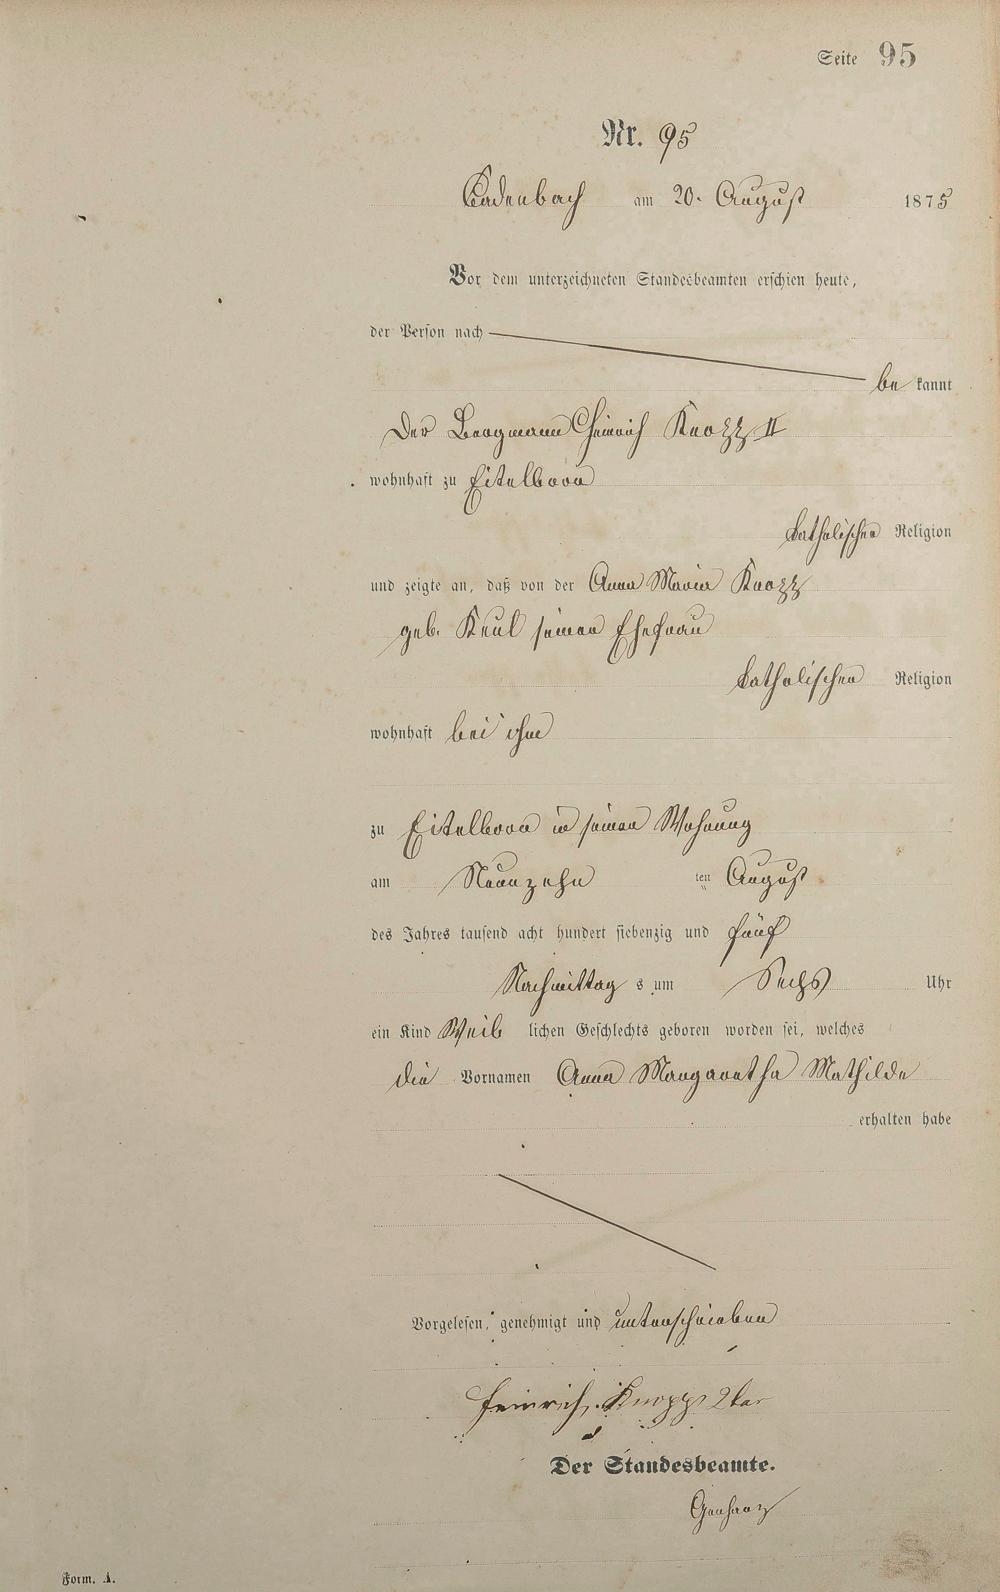 Seite 95
Nr. 95
Cadenbach am 20. August 1875
Vor dem unterzeichneten Standesbeamten erschien heute,
der Person nach
be kannt
Der Bergmann Heinrich Knopp II
wohnhaft zu Eitelborn
katholischer Religion
und zeigte an, daß von der Anna Maria Knopp
geb. Keul seiner Ehefrau
katholischen Religion
wohnhaft bei ihm
zu Eitelborn in seiner Wohnung
am Neunzehn ten August
des Jahres tausend acht hundert siebenzig und fünf
Nachmittag s um Sechs Uhr
ein Kind Weib lichen Geschlechts geboren worden sei, welches
die Vornamen Anna Margaretha Mathilde
erhalten habe
Vorgelesen, genehmigt und unterschrieben
Heinrich Knopp 2ter
Der Standesbeamte.
Form. A.